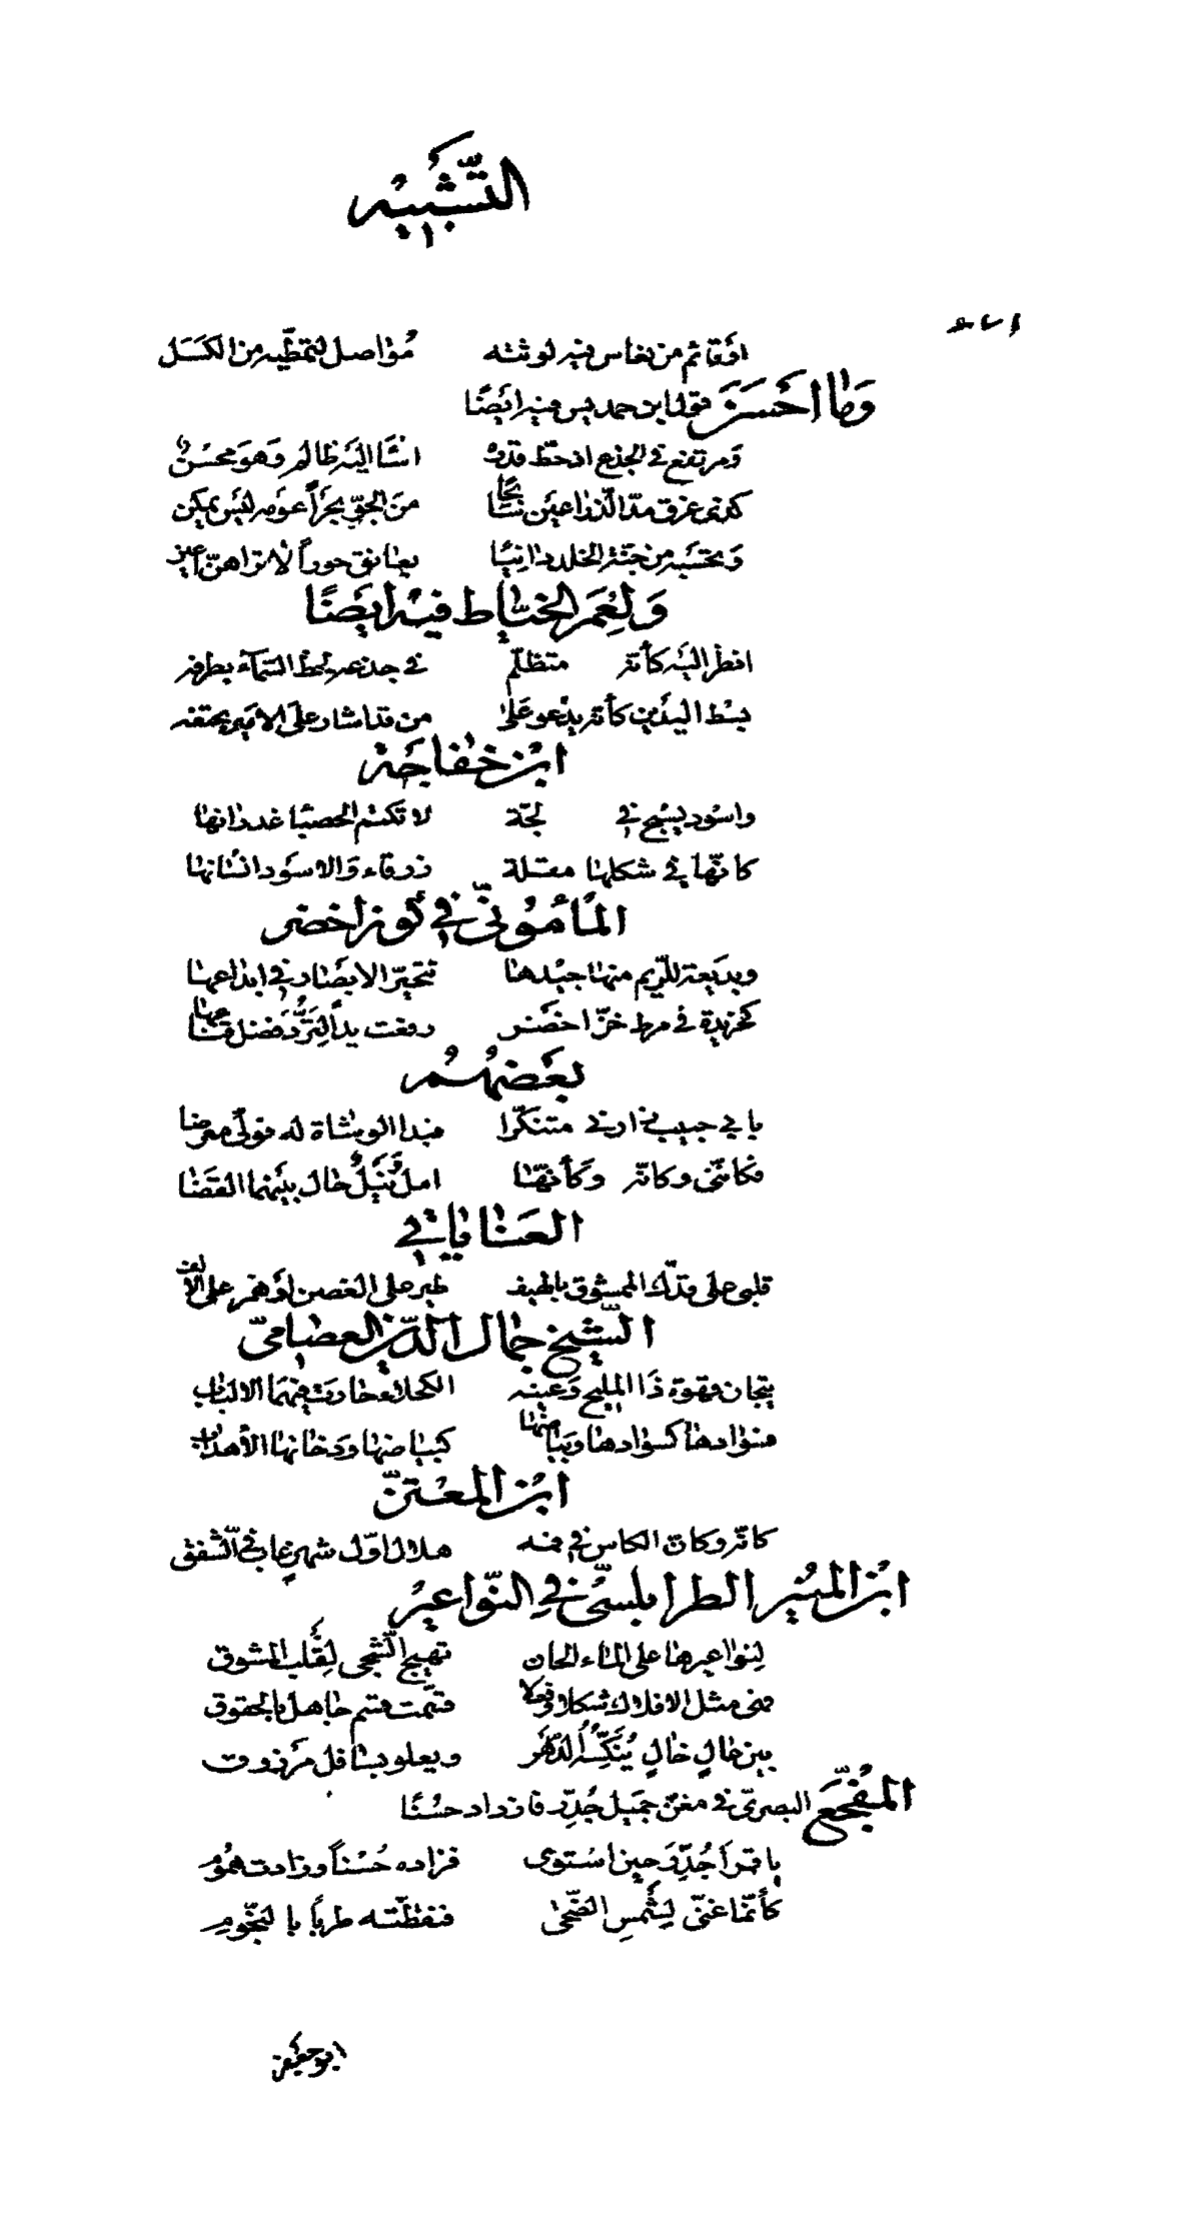 التَّشبيه
أو قائم من نعاس فيه لوثته مُواصل لتمطّيه من الكسَل
وَما احسَنَ قول ابن حمديس فيه ايضًا
وَمرتفع في الجذع اذ حطّ قدرُه اسَا اليَه ظالم وَهو محسنُ
كذي غرق مدّ الذراعين سَابحًا منَ الجوّ بحرًا عومه ليسَ يمكن
وَتحسَبه من جنّة الخلد دانيًا يعانق حورًا لا تراهنّ اعين
وَلعُمَر الخيّاط فيه ايضًا
انظر اليَه كأنّه متظلّم في جذعه لحظ السّمآء بطرفه
بسَط اليدَين كأنّه يدعو عَلى من قد اشار على الامَير بحتفه
ابن خفاجَة
واسود يسبح في لجّة لا تكتم الحصبَا غدرانها
كانّها في شكلها مقلة زرقاء وَالاسوَد انسَانها
المأموُنيّ في كوز اخضر
وبديَعة للرّيم منها جيْدها تتحيّر الابصَار في ابداعها
كخريدة في مرط خزّ اخضَر رفعت يدًا لتردّ فضل قناعها
بعَضهُمُ
بابي حبيب زارني متنكّرا فبدا الوشاة له فولّى معرضا
فكانّني وكانّه وَكأنّهمَا امل وَنيَل حال بينَهما القضَا
العَناياتي
قلبي على قدّك الممشوق بالهيف طير على الغصن اوَ همز على الالف
الشّيخ جمال الدّين العصاميّ
فنجان قهوة ذَا المليح وَعينه الكحلاء حارت فيهمَا الالباب
فسوادها كسوادها وبَياضها كبيَاضها ودَخانها الأهداب
ابن المعْتزّ
كانّه وكانّ الكاس في فمه هلال اوّل شهرٍ غاب في الشّفق
ابنُ المنُير الطرابلسيّ في النّواعيرُ
لِنواعيرها على الماء الحان تهيج الشّجى لِقَلب المشوق
فهي مثل الافلاك شكلا وفعلا قسّمت قسم جاهل بالحقوق
بين عالٍ خالٍ يُنَكّسُه الدّهَر ويعلو بسَافل مَرزوق
المفُجّعَ البصريّ في مغنّ جمَيل جُدِّر فازداد حسُنًا
يا قمرًا جُدِّرَ حين استوى فزاده حُسْنًا وزادت همُوم
كأنّما غنّى لِشَمسِ الضّحى فنقطّته طربًا بالنّجوم
ابو حفص